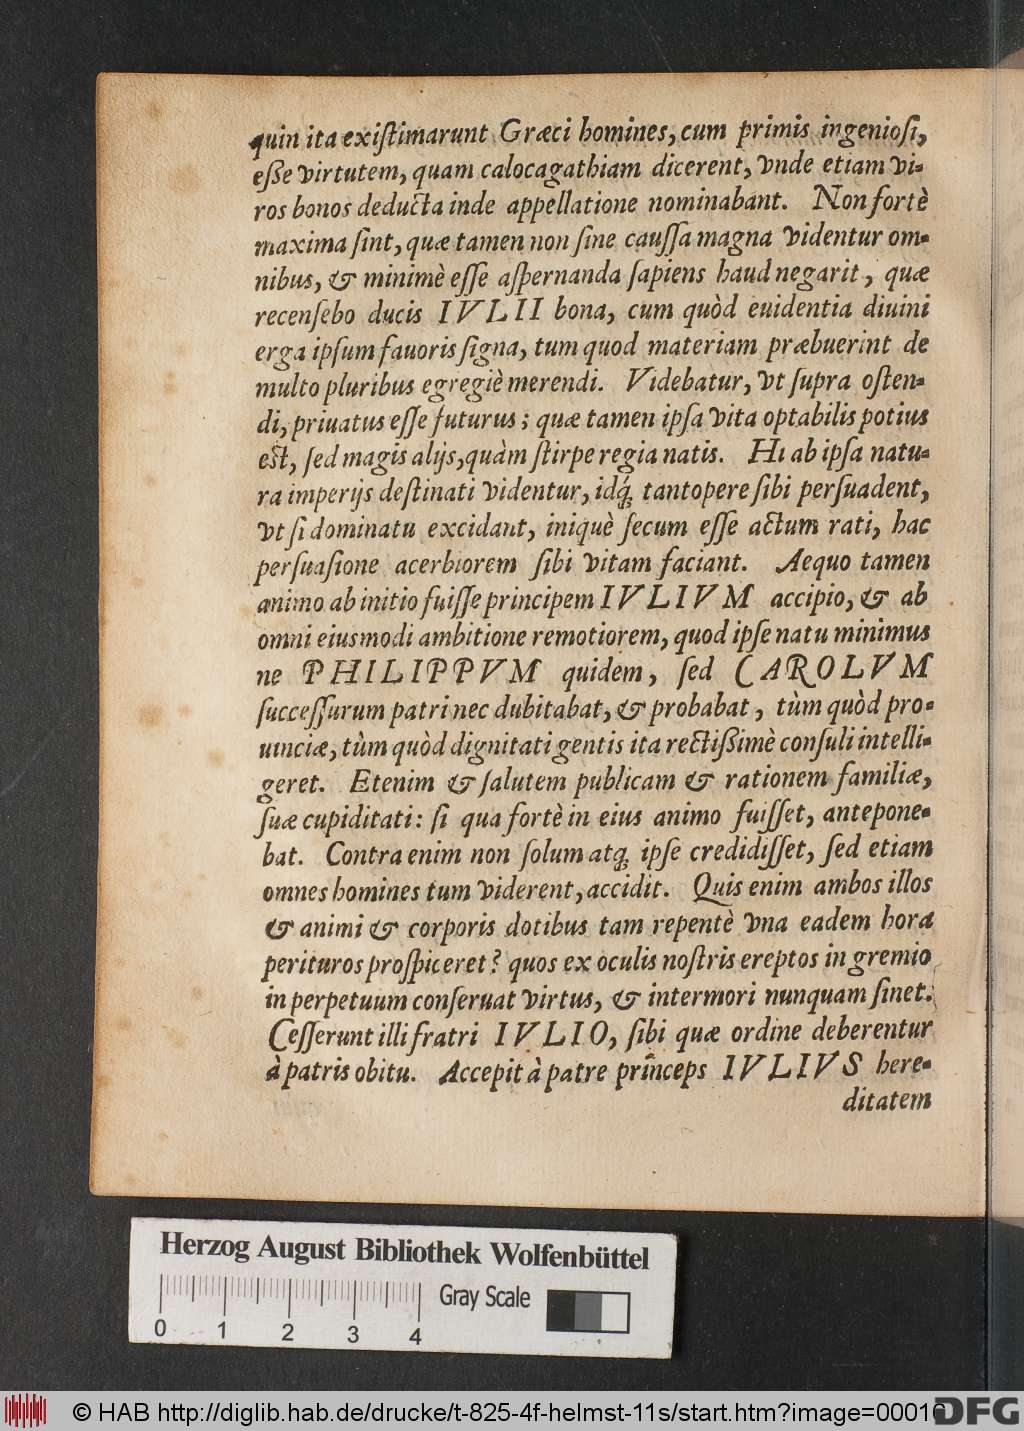 quin ita exiſtimarunt Græci homines, cum primis ingenioſi,
eße virtutem, quam calocagathiam dicerent, vnde etiam vi-
ros bonos deducta inde appellatione nominabant. Non fortè
maxima ſint, quæ tamen non ſine cauſſa magna videntur om-
nibus, & minimè eſſe aſpernanda ſapiens haud negarit, quæ
recenſebo ducis IVLII bona, cum quòd euidentia diuini
erga ipſum fauoris ſigna, tum quod materiam præbuerint de
multo pluribus egregiè merendi. Videbatur, vt ſupra oſten-
di, priuatus eſſe futurus; quæ tamen ipſa vita optabilis potius
est, ſed magis alijs, quàm ſtirpe regia natis. Hi ab ipſa natu-
ra imperijs deſtinati videntur, idq́; tantopere ſibi perſuadent,
vt ſi dominatu excidant, iniquè ſecum eſſe actum rati, hac
perſuaſione acerbiorem ſibi vitam faciant. Aequo tamen
animo ab initio fuiſſe principem IVLIVM accipio, & ab
omni eiusmodi ambitione remotiorem, quod ipſe natu minimus
ne PHILIPPVM quidem, ſed CAROLVM
ſucceſſurum patri nec dubitabat, & probabat, tùm quòd pro-
uinciæ, tùm quòd dignitati gentis ita rectißimè conſuli intelli-
geret. Etenim & ſalutem publicam & rationem familiæ,
ſuæ cupiditati: ſi qua fortè in eius animo fuiſſet, antepone-
bat. Contra enim non ſolum atq; ipſe credidiſſet, ſed etiam
omnes homines tum viderent, accidit. Quis enim ambos illos
& animi & corporis dotibus tam repentè vna eadem hora
perituros proſpiceret? quos ex oculis noſtris ereptos in gremio
in perpetuum conſeruat virtus, & intermori nunquam ſinet.
Ceſſerunt illi fratri IVLIO, ſibi quæ ordine deberentur
à patris obitu. Accepit à patre princeps IVLIVS here-
ditatem
Herzog August Bibliothek Wolfenbüttel
Gray Scale
0 1 2 3 4
© HAB http://diglib.hab.de/drucke/t-825-4f-helmst-11s/start.htm?image=00016
DFG